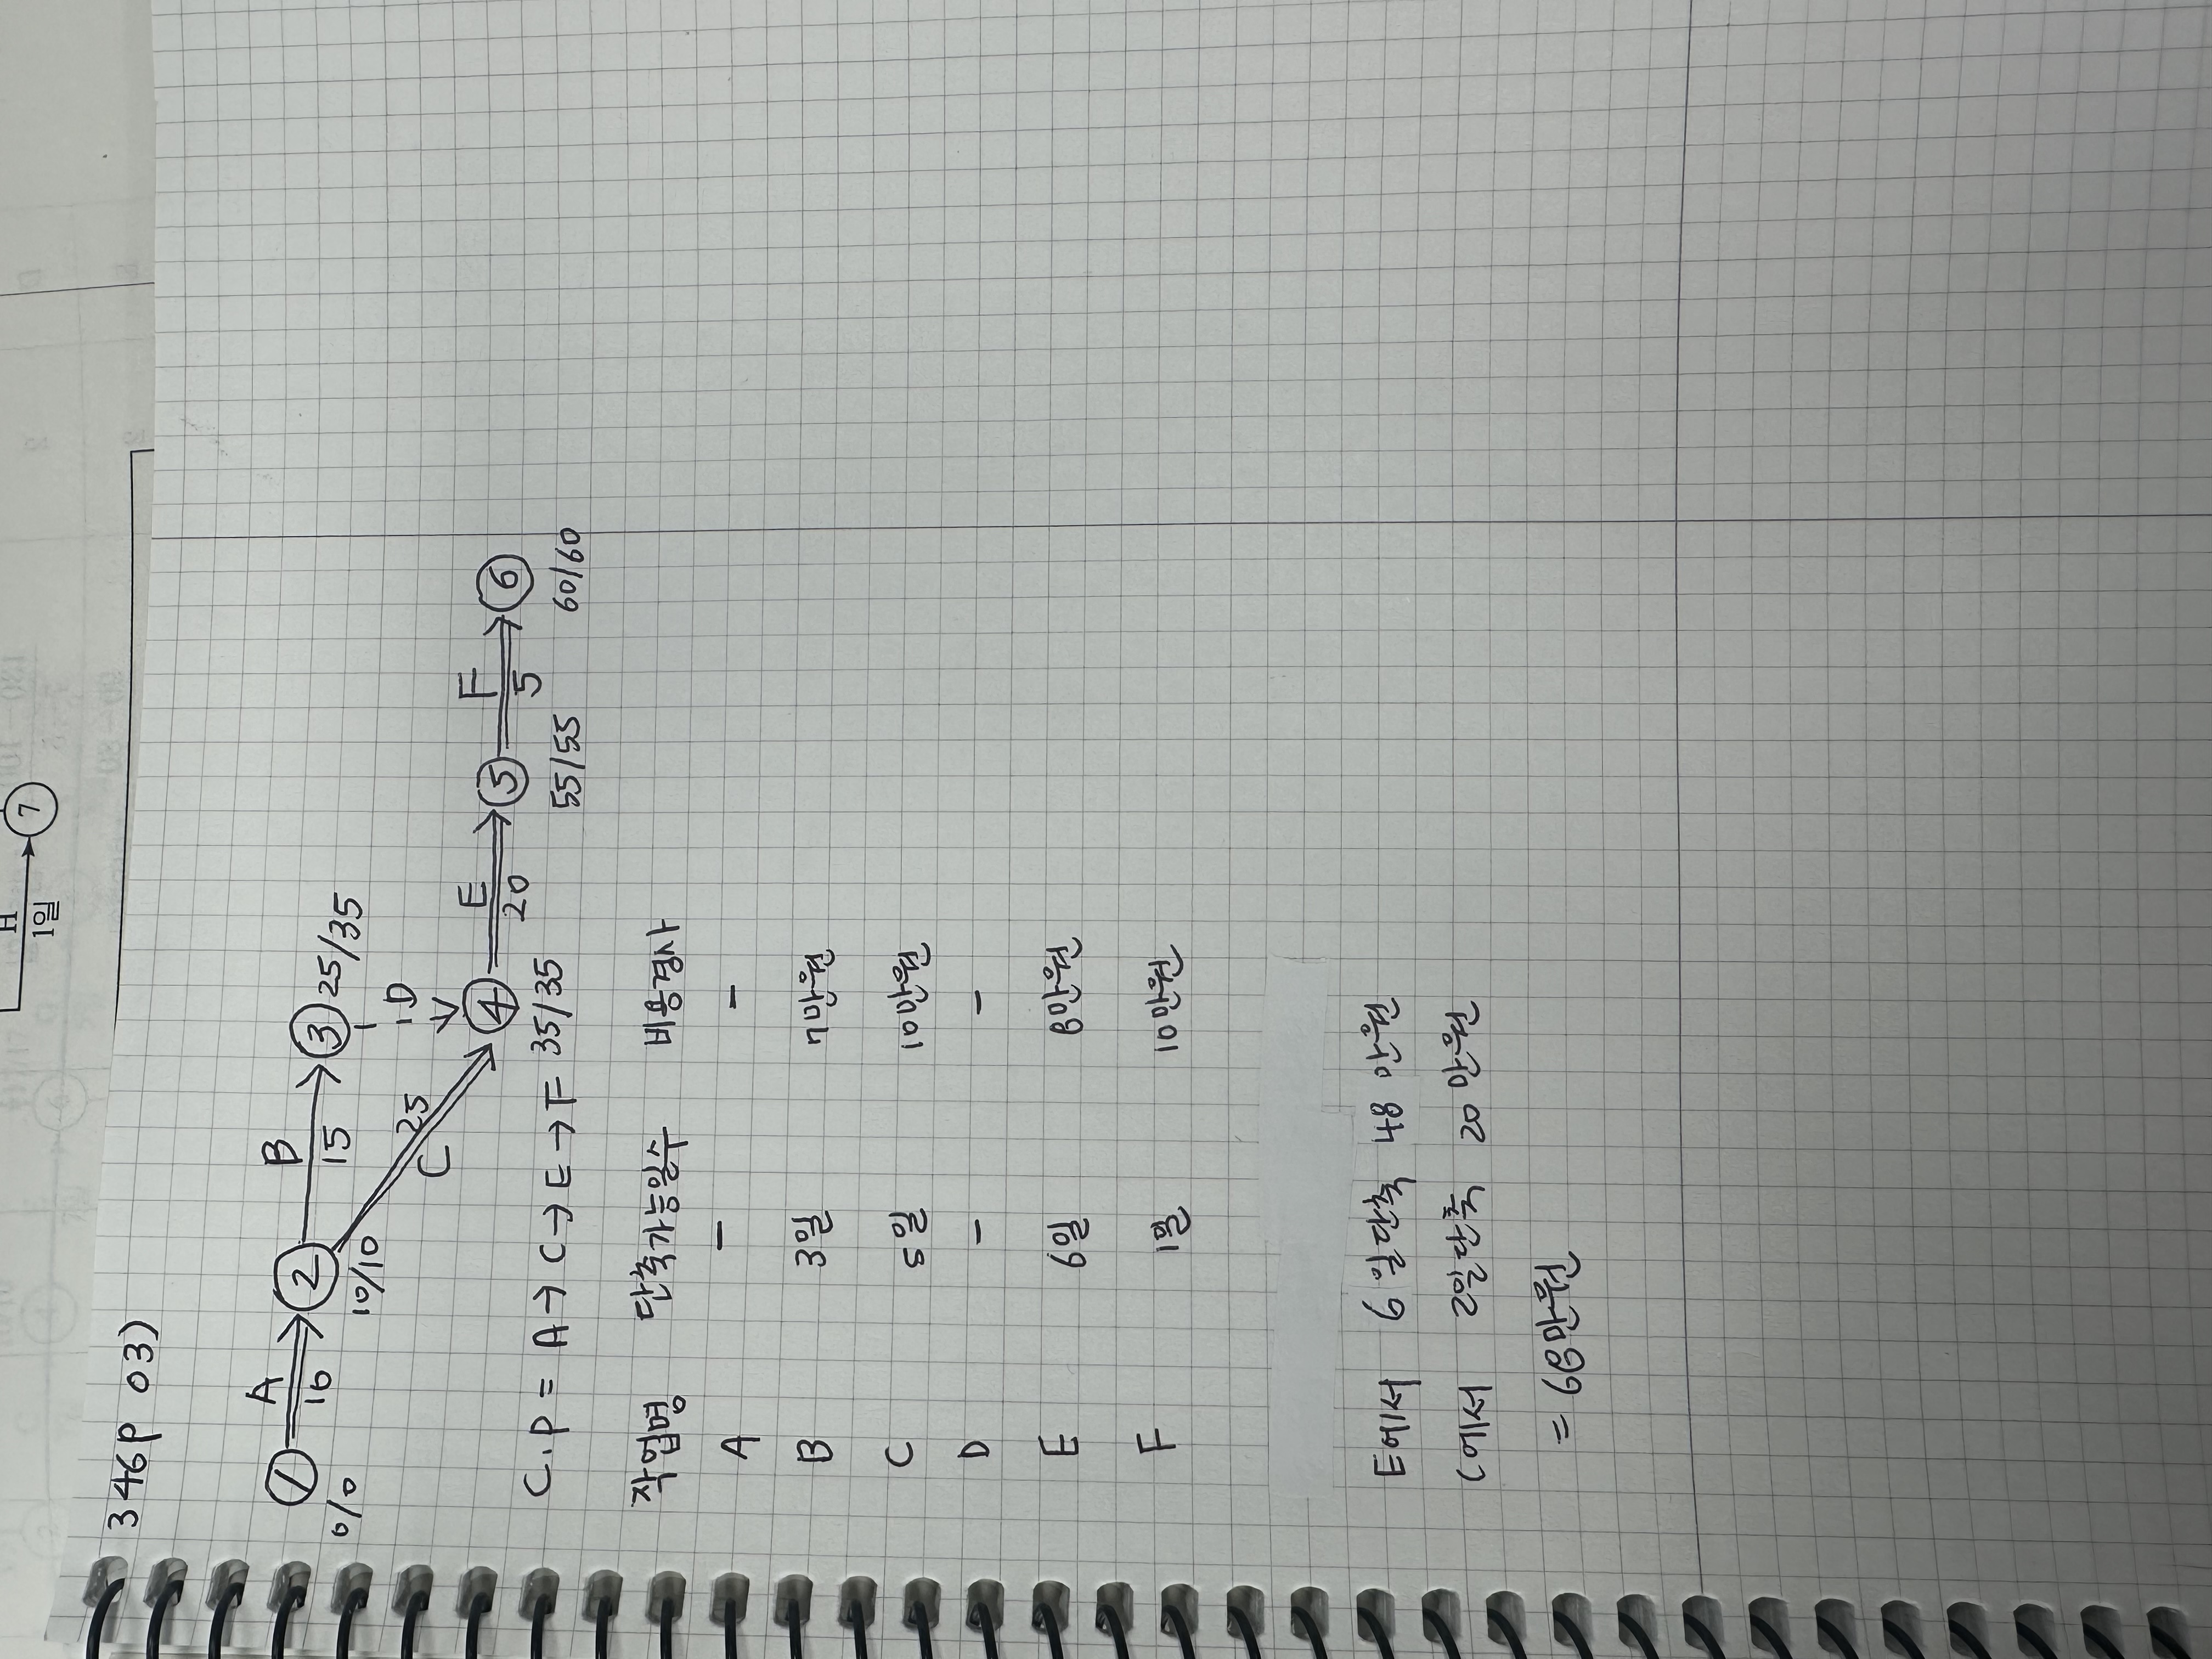 H
1일
7
346p 03)
A
10
B
15
25/35
1 2 3
0/0
10/10
D
C
25
E
20
F
5
4 5 6
55/55
60/60
C.P = A → C → E → F 35/35
작업명 단축가능일수 비용경사
A - -
B 3일 7만원
C 5일 10만원
D - -
E 6일 8만원
F 1일 10만원
E에서 6일단축 48만원
C에서 2일단축 20만원
= 68만원